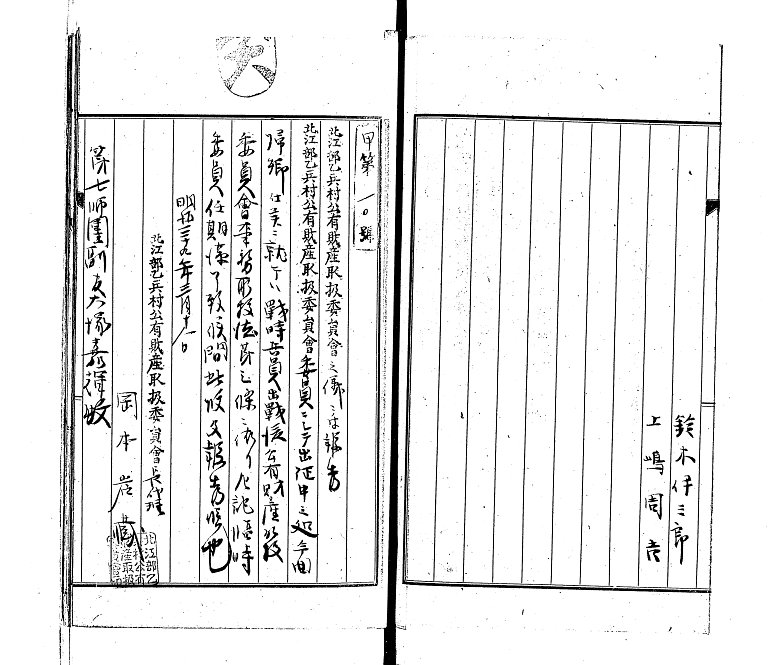 鈴木伊三郎
上嶋周吉
甲第一〇號
北江部乙兵村公有財産取扱委員會之儀ニ付報告
北江部乙兵村公有財産取扱委員會委員ニシテ出征中之処今回
帰郷仕候ニ就テハ戦時兵員出戦後公有財産取扱
委員會事務取扱
委員任期満了致候間此段及報告候也
明治三十九年三月十一日
北江部乙兵村公有財産取扱委員會長代理
岡本
第七師團副官大塚嘉